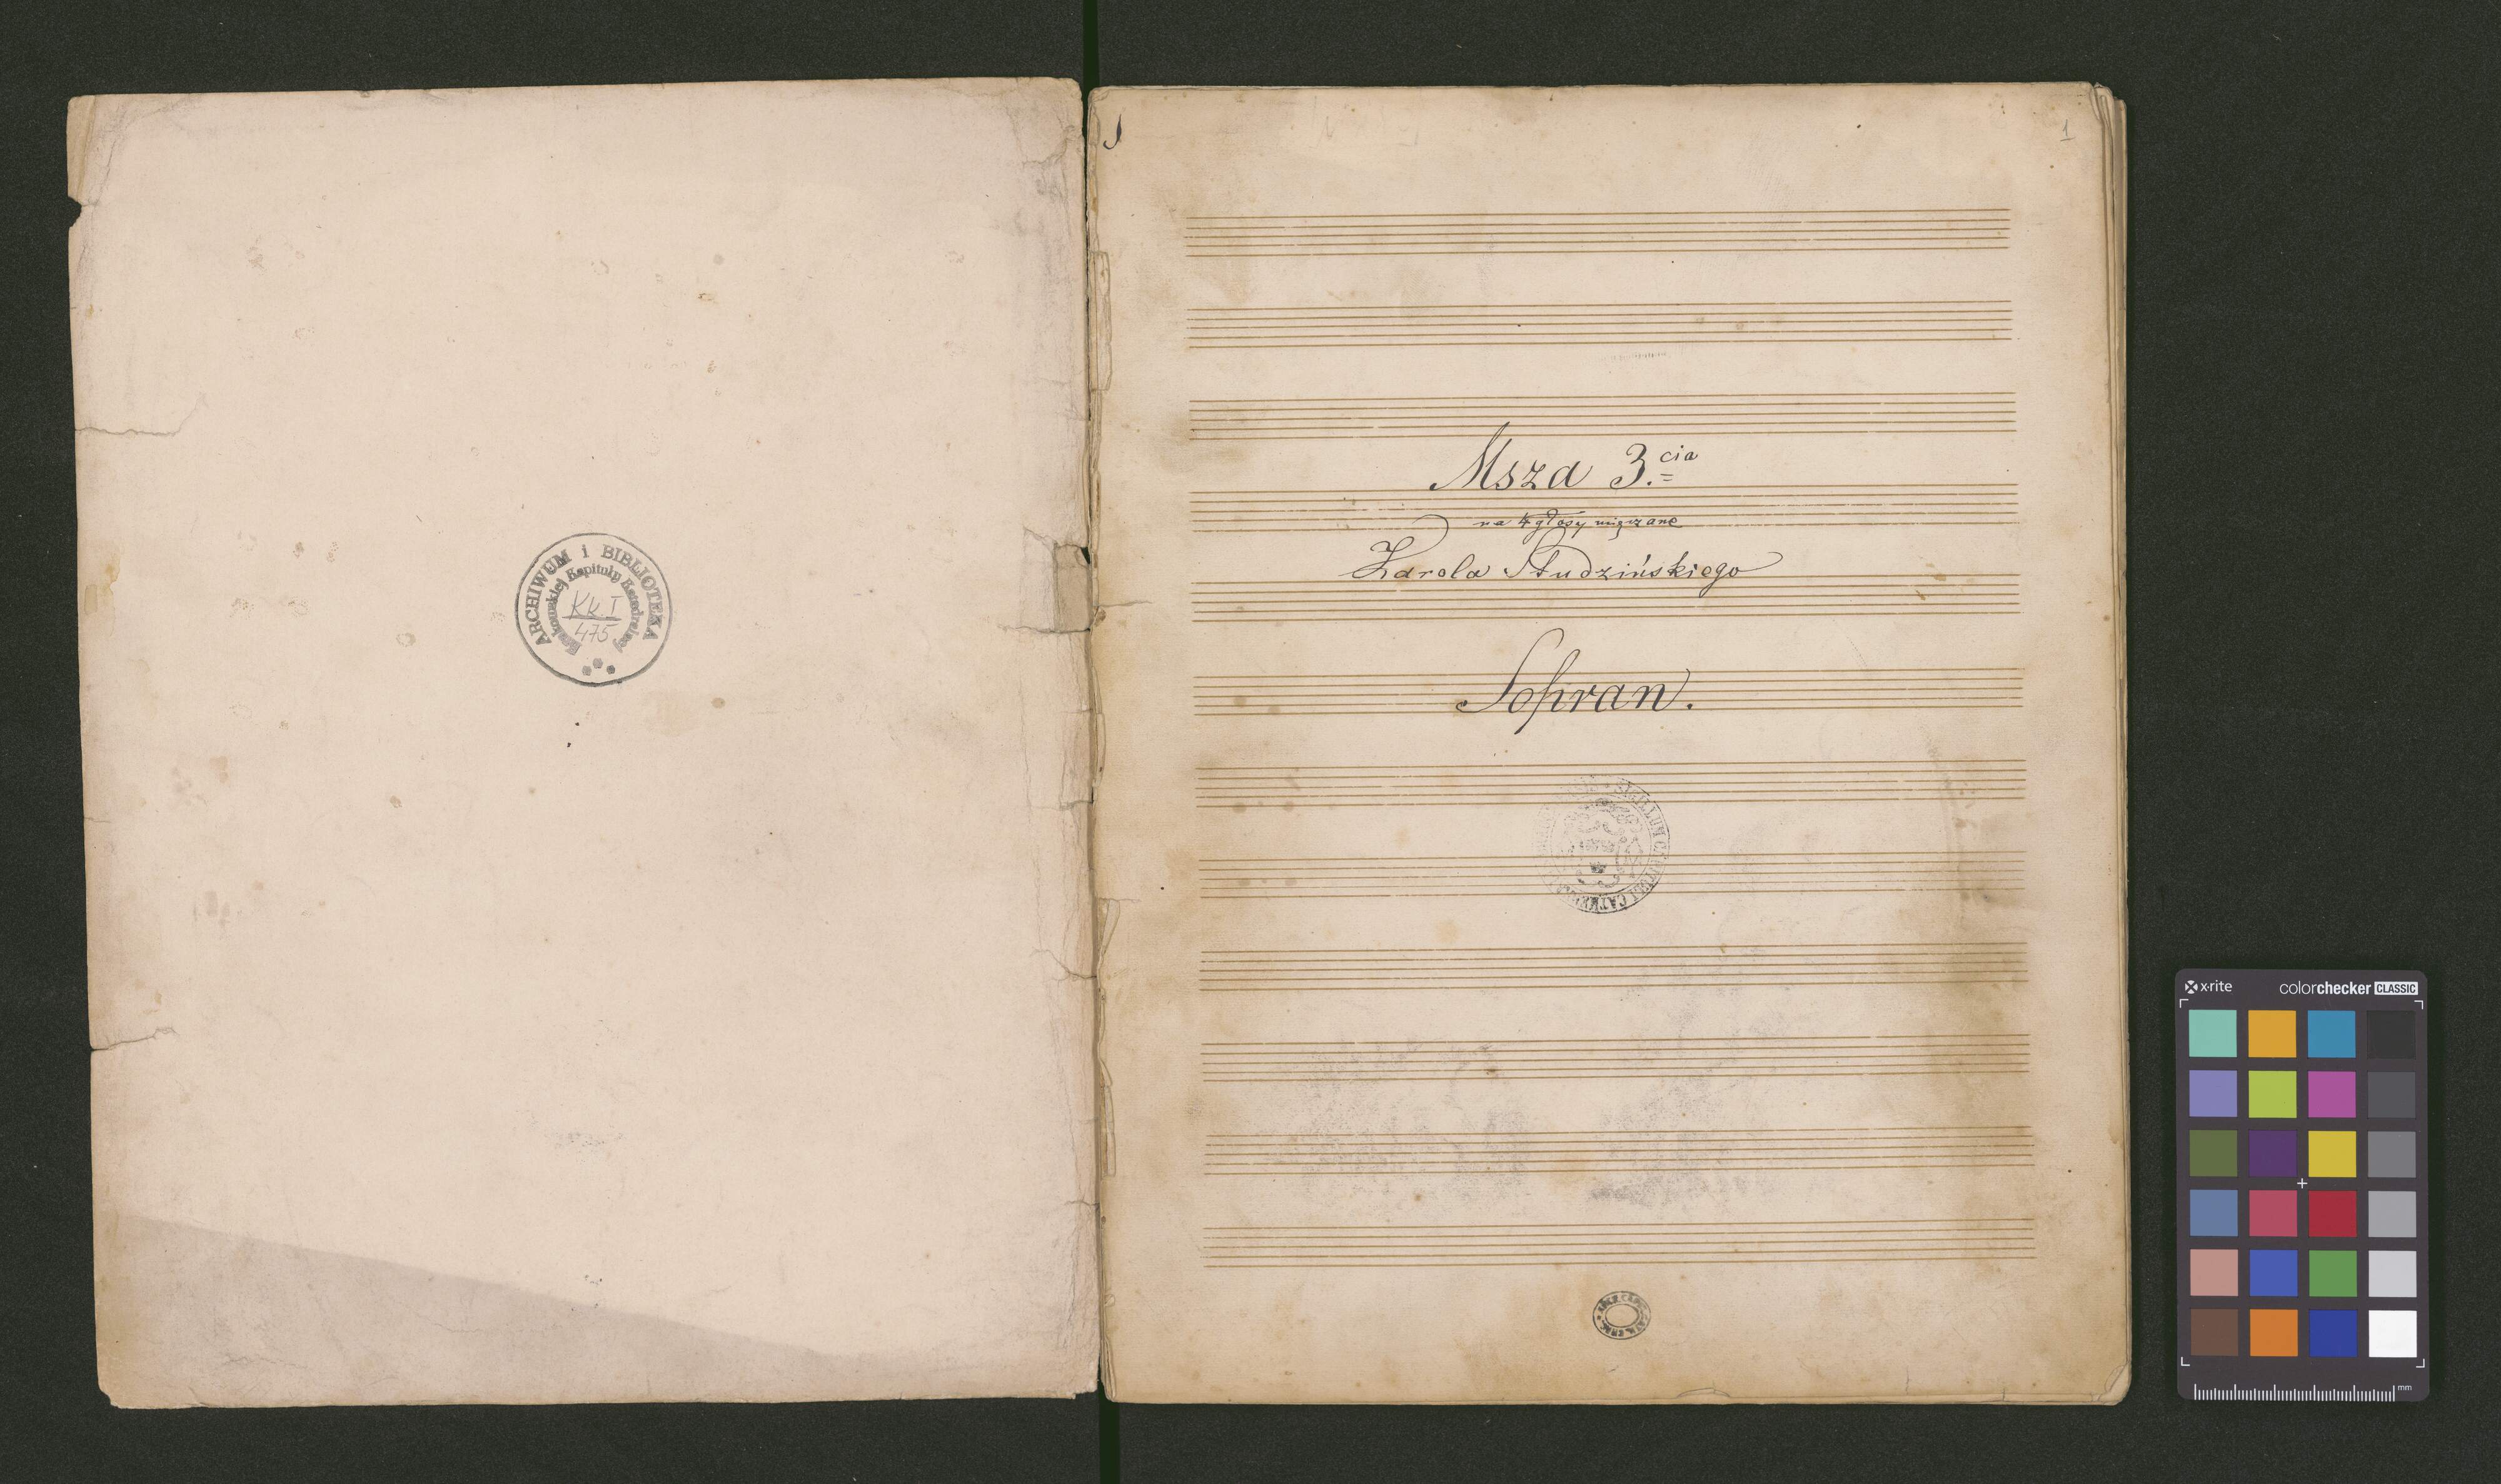 ARCHIWUM i BIBLIOTEKA
Krakowskiej Kapituły Katedralnej
KK. I
475
1
Msza 3.cia
na 4 głosy mięszane
Karola Studzińskiego
Sopran.
SIGILLUM CAPITULI CATHEDR
x-rite colorchecker CLASSIC
mm